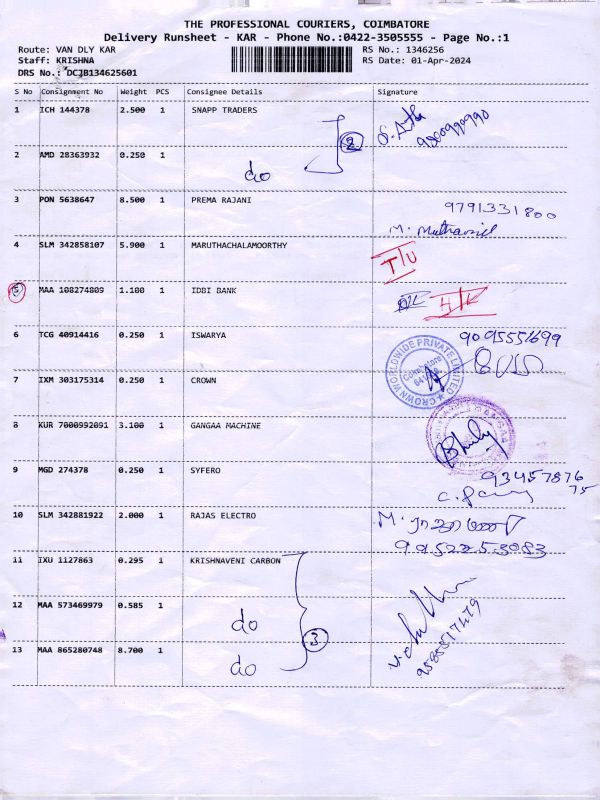 THE PROFESSIONAL COURIERS, COIMBATORE
Delivery Runsheet - KAR - Phone No.:0422-3505555 - Page No.:1
Route: VAN DLY KAR RS No.: 1346256
Staff: KRISHNA RS Date: 01-Apr-2024
DRS No.: DCJB134625601
S No Consignment No Weight PCS Consignee Details Signature
1 ICH 144378 2.500 1 SNAPP TRADERS
9800990990
2
2 AMD 28363932 0.250 1 do
3 PON 5638647 8.500 1 PREMA RAJANI 9791331800
M.
4 SLM 342858107 5.900 1 MARUTHACHALAMOORTHY T/U
5 MAA 108274809 1.100 1 IDBI BANK
6 TCG 40914416 0.250 1 ISWARYA 9095551699
CROWN WORLDWIDE PRIVATE LIMITED
Coimbatore
7 IXM 303175314 0.250 1 CROWN
8 KUR 7000992091 3.100 1 GANGAA MACHINE
9 MGD 274378 0.250 1 SYFERO 93457876
75
10 SLM 342881922 2.000 1 RAJAS ELECTRO M.
9952253083
11 IXU 1127863 0.295 1 KRISHNAVENI CARBON
12 MAA 573469979 0.585 1 do
3
9585517479
13 MAA 865280748 8.700 1 do